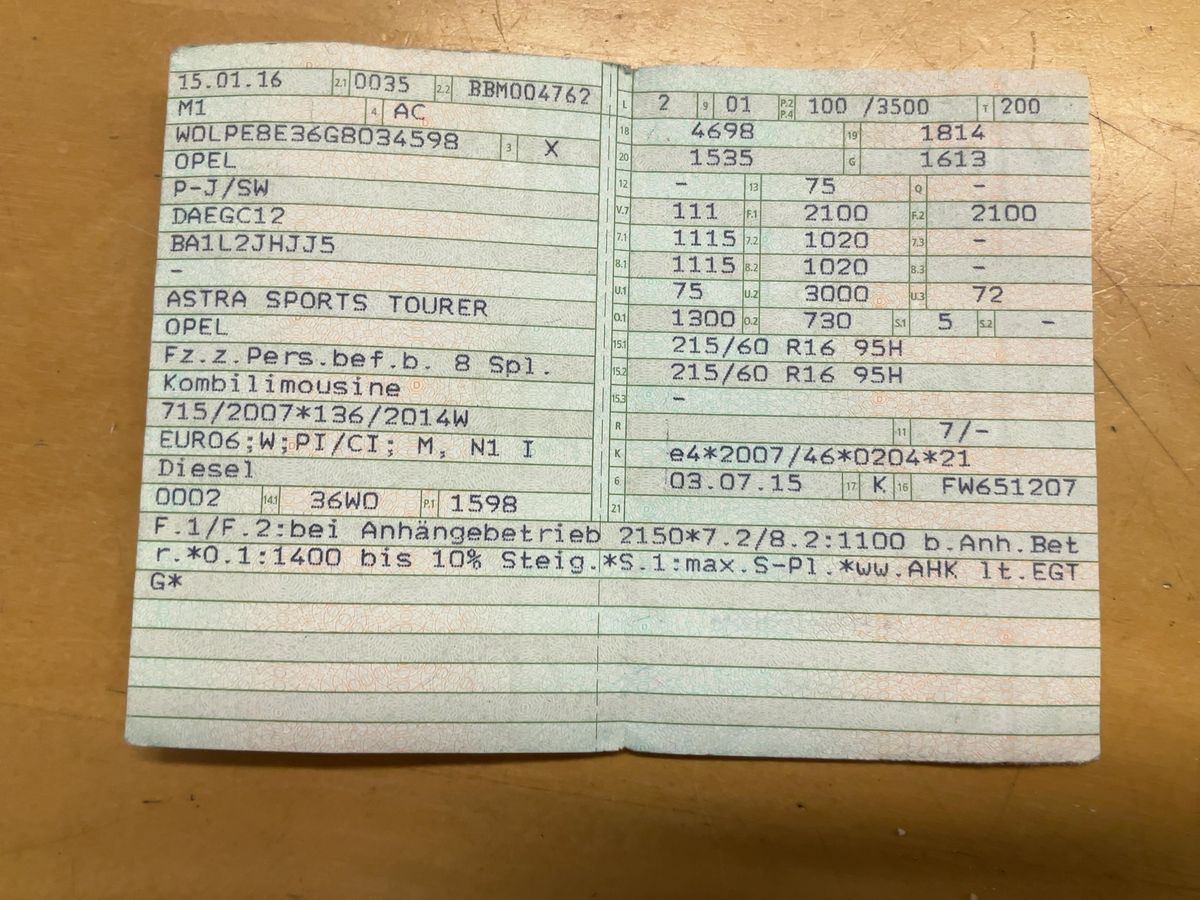 15.01.16 2.1 0035 2.2 BBM004762
M1 4 AC
W0LPE8E36G8034598 3 X
OPEL
P-J/SW
DAEGC12
BA1L2JHJJ5
-
ASTRA SPORTS TOURER
OPEL
Fz.z.Pers.bef.b. 8 Spl.
Kombilimousine
715/2007*136/2014W
EURO6;W;PI/CI; M, N1 I
Diesel
0002 14.1 36W0 P.1 1598
L 2 9 01 P.2 P.4 100 /3500 T 200
18 4698 19 1814
20 1535 G 1613
12 - 13 75 Q -
V.7 111 F.1 2100 F.2 2100
7.1 1115 7.2 1020 7.3 -
8.1 1115 8.2 1020 8.3 -
U.1 75 U.2 3000 U.3 72
O.1 1300 O.2 730 S.1 5 S.2 -
15.1 215/60 R16 95H
15.2 215/60 R16 95H
15.3 -
R 11 7/-
K e4*2007/46*0204*21
6 03.07.15 17 K 16 FW651207
21
F.1/F.2:bei Anhängebetrieb 2150*7.2/8.2:1100 b.Anh.Bet
r.*O.1:1400 bis 10% Steig.*S.1:max.S-Pl.*ww.AHK lt.EGT
G*